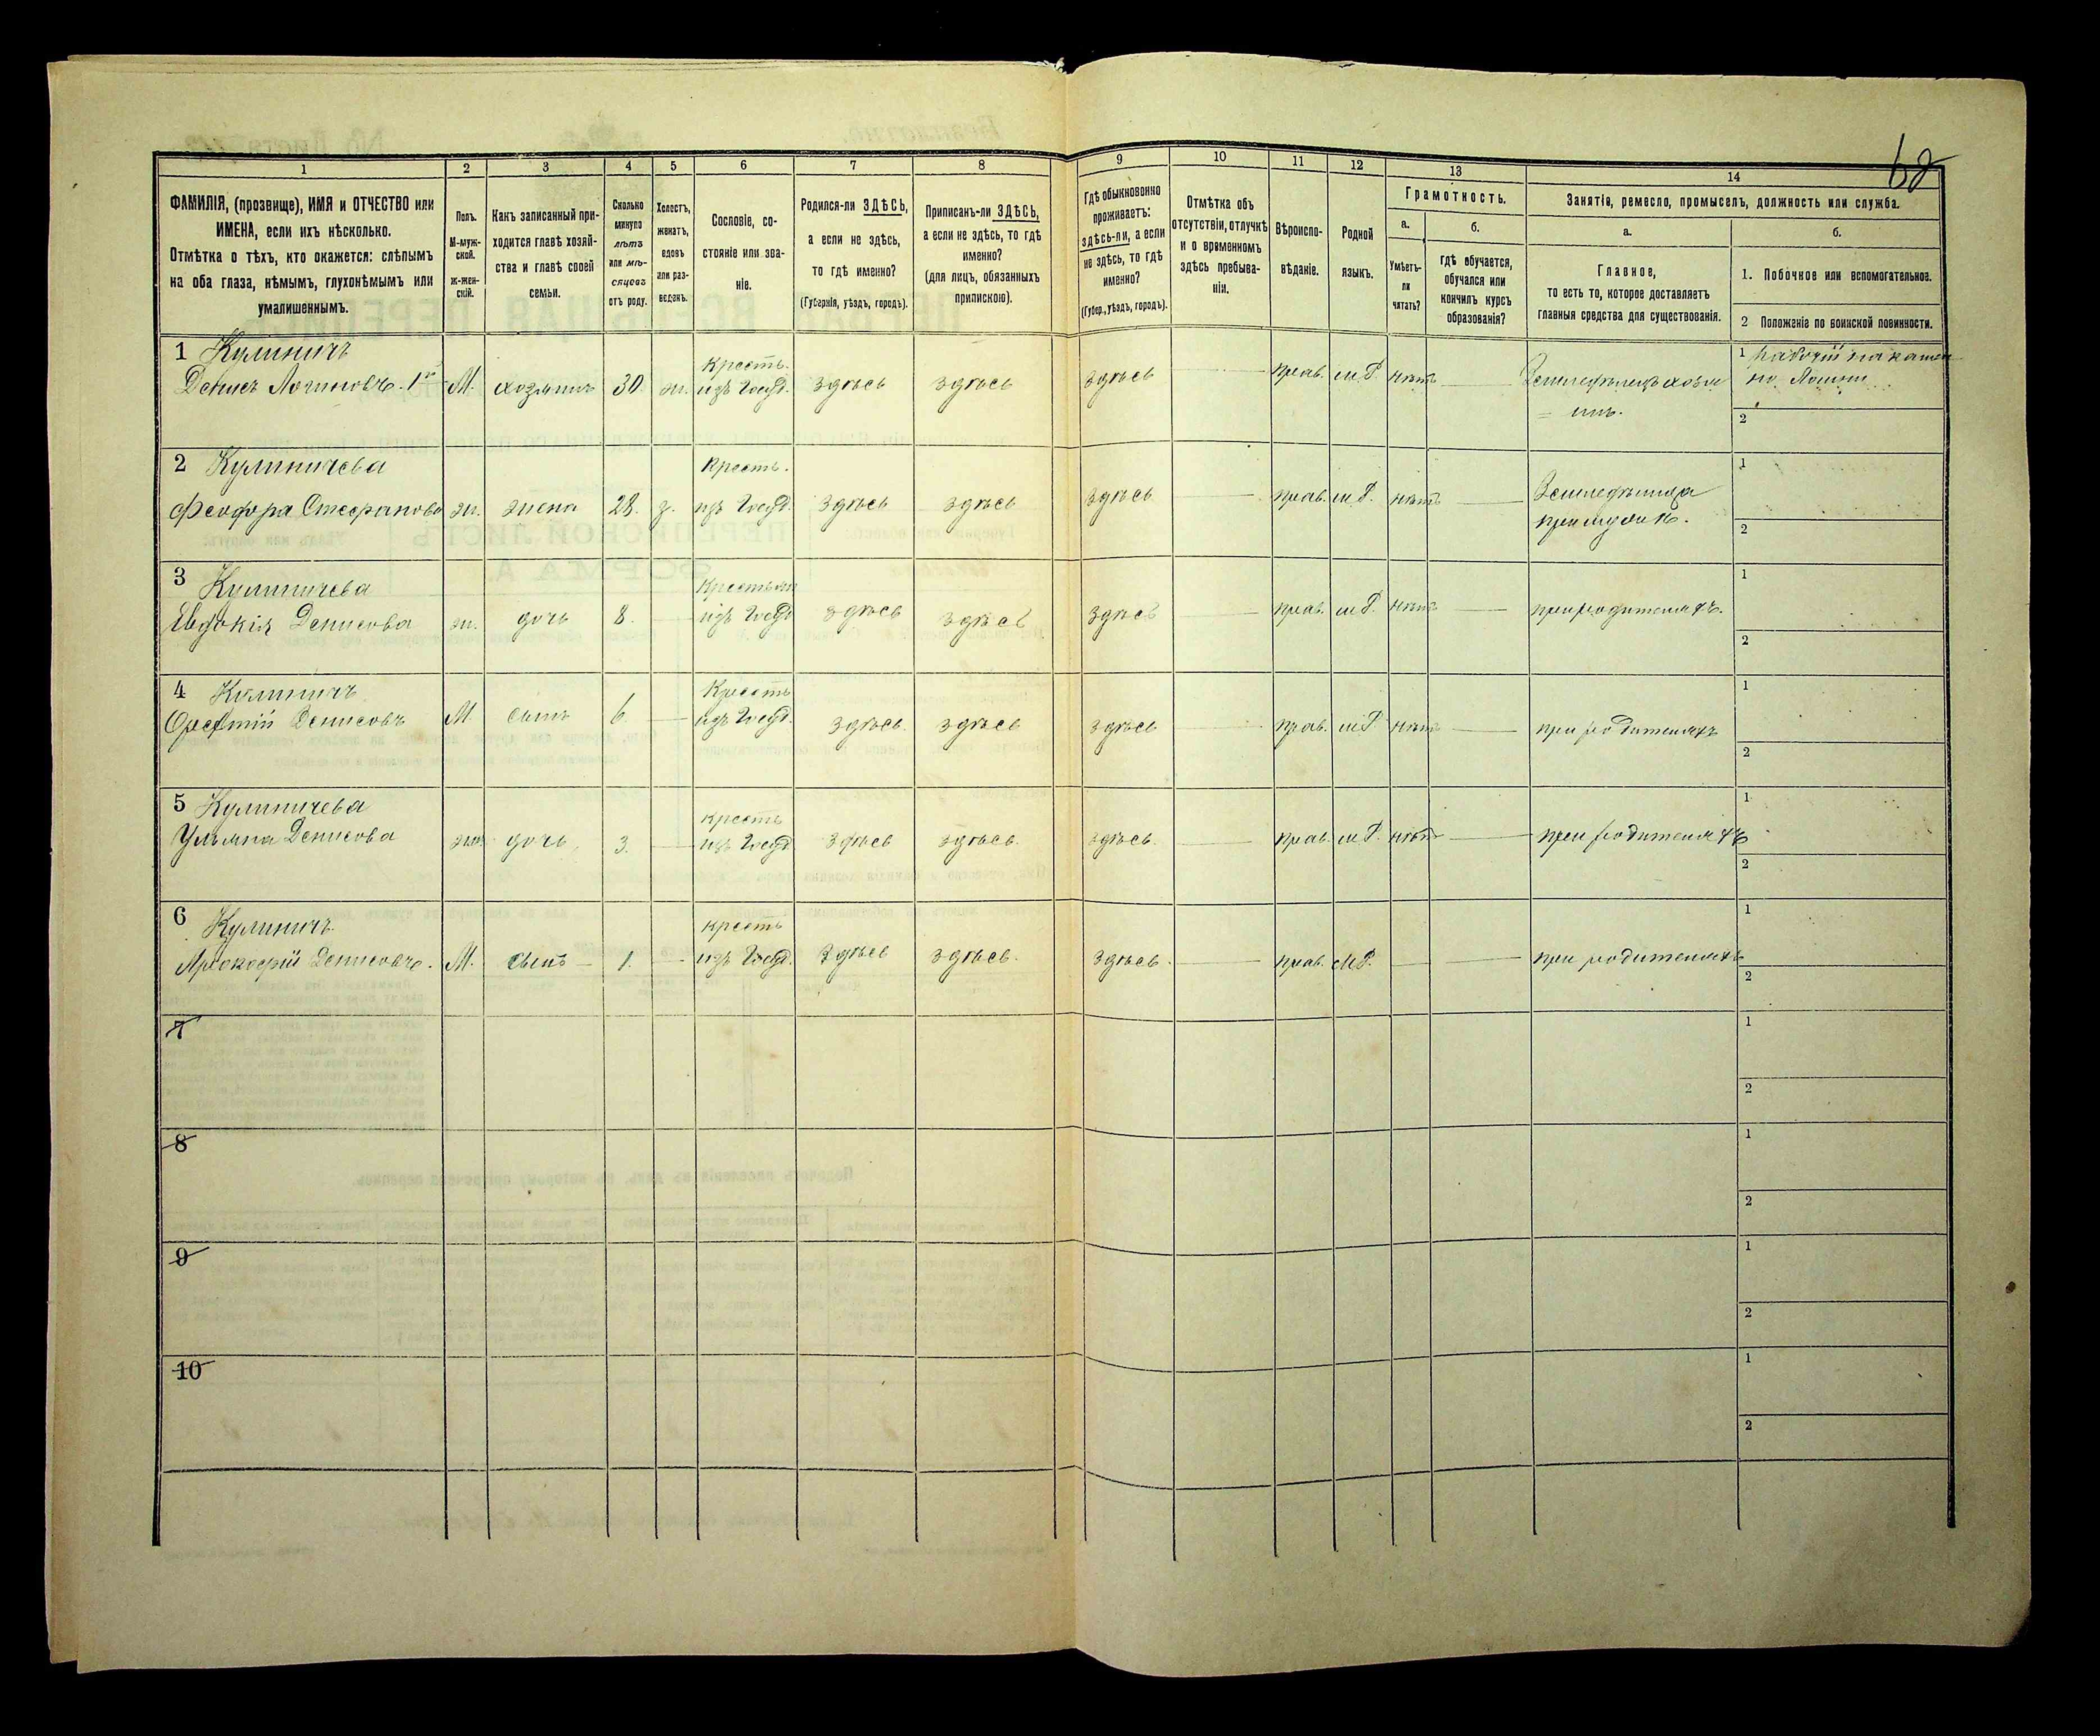 68
1 2 3 4 5 6 7 8 9 10 11 12 13 14
ФАМИЛІЯ, (прозвище), ИМЯ и ОТЧЕСТВО или
ИМЕНА, если ихъ нѣсколько.
Отмѣтка о тѣхъ, кто окажется: слѣпымъ
на оба глаза, нѣмымъ, глухонѣмымъ или
умалишеннымъ.
Полъ.
М-муж-
ской.
ж-жен-
скій.
Какъ записанный при-
ходится главѣ хозяй-
ства и главѣ своей
семьи.
Сколько
минуло
лѣтъ
или мѣ-
сяцевъ
отъ роду.
Холостъ,
женатъ,
вдовъ
или раз-
веденъ.
Сословіе, со-
стояніе или зва-
ніе.
Родился-ли ЗДѢСЬ,
а если не здѣсь,
то гдѣ именно?
(Губернія, уѣздъ, городъ).
Приписанъ-ли ЗДѢСЬ,
а если не здѣсь, то гдѣ
именно?
(для лицъ, обязанныхъ
припискою).
Гдѣ обыкновенно
проживаетъ:
здѣсь-ли, а если
не здѣсь, то гдѣ
именно?
(Губер., уѣздъ, городъ).
Отмѣтка объ
отсутствіи, отлучкѣ
и о временномъ
здѣсь пребыва-
ніи.
Вѣроиспо-
вѣданіе.
Родной
языкъ.
Грамотность.
а.
Умѣетъ-
ли
читать?
б.
гдѣ обучается,
обучался или
кончилъ курсъ
образованія?
Занятіе, ремесло, промыселъ, должность или служба.
а.
Главное,
то есть то, которое доставляетъ
главныя средства для существованія.
б.
1. Побочное или вспомогательное.
2 Положеніе по воинской повинности.
1 Кулиничъ
Денисъ Логиновъ. М. хозяинъ 30 ж.
Крестъ.
изъ Госуд. здѣсь здѣсь здѣсь прав. м.Р. нѣтъ
Земледѣлецъ хозя
= инъ.
1 рабочій на
2
2 Кулиничева
Феофора Стефанова ж. жена 28. з.
Крестъ.
изъ Госуд. здѣсь здѣсь здѣсь прав. м.Р. нѣтъ
Земледѣлица
при мужѣ
1
2
3 Кулиничева
Евдокія Денисова ж. дочь 8.
Крестьян
изъ Госуд здѣсь здѣсь здѣсь прав. м.Р. нѣтъ при родителяхъ.
1
2
4 Кулиничъ
Денисовъ М. сынъ 6
Крестъ
изъ Госуд. здѣсь здѣсь здѣсь прав. м.Р нѣтъ при родителяхъ
1
2
5 Кулиничева
Ульяна Денисова жен дочь 3.
крестъ
изъ Госуд здѣсь здѣсь. здѣсь. прав. м.Р. нѣтъ при родителяхъ
1
2
6 Кулиничъ
Прокофій Денисовъ. М. сынъ 1.
крестъ
изъ Госуд. здѣсь здѣсь. здѣсь. прав. м.Р. при родителяхъ
1
2
7
1
2
8
1
2
9
1
2
10
1
2